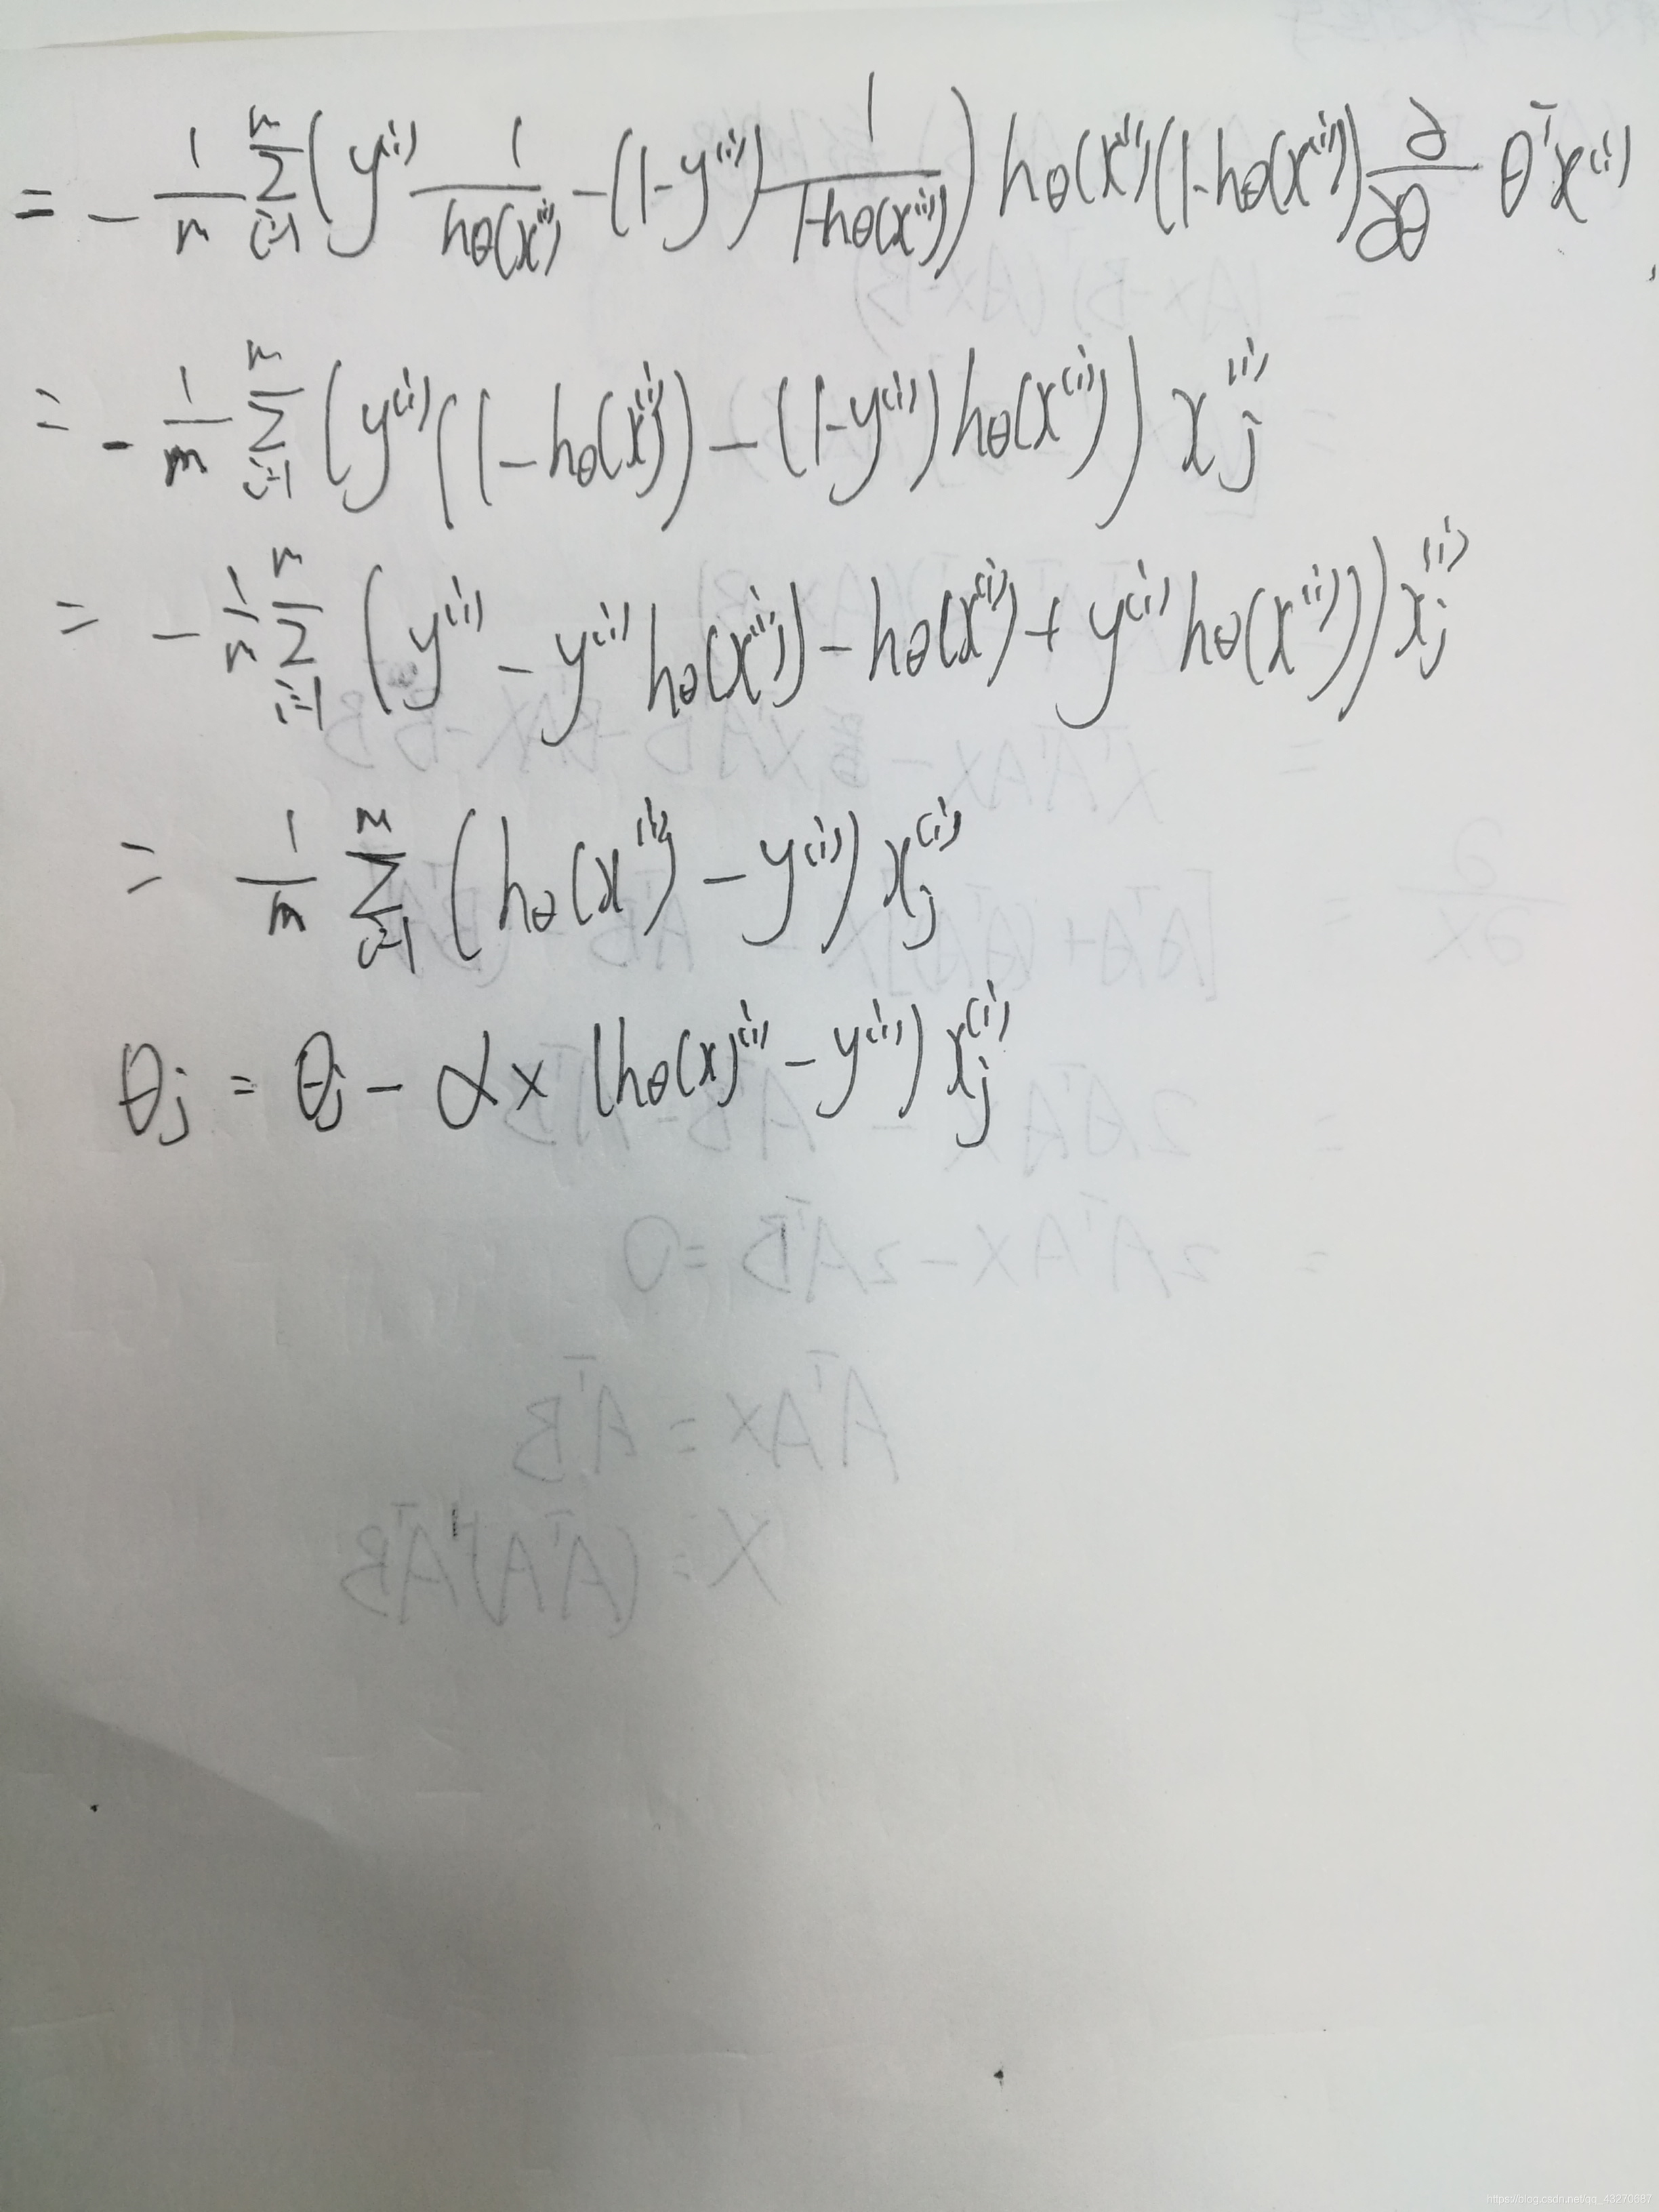 = - 1/m Σ_{i=1}^{m} ( y^{(i)} 1/hθ(x^{(i)}) - (1-y^{(i)}) 1/(1-hθ(x^{(i)})) ) hθ(x^{(i)})(1-hθ(x^{(i)})) ∂/∂θ θ^T x^{(i)}
= - 1/m Σ_{i=1}^{m} ( y^{(i)} (1-hθ(x^{(i)})) - (1-y^{(i)}) hθ(x^{(i)}) ) x_j^{(i)}
= - 1/m Σ_{i=1}^{m} ( y^{(i)} - y^{(i)} hθ(x^{(i)}) - hθ(x^{(i)}) + y^{(i)} hθ(x^{(i)}) ) x_j^{(i)}
= 1/m Σ_{i=1}^{m} ( hθ(x^{(i)}) - y^{(i)} ) x_j^{(i)}
θj = θj - α × (hθ(x)^{(i)} - y^{(i)}) x_j^{(i)}
https://blog.csdn.net/qq_43270687